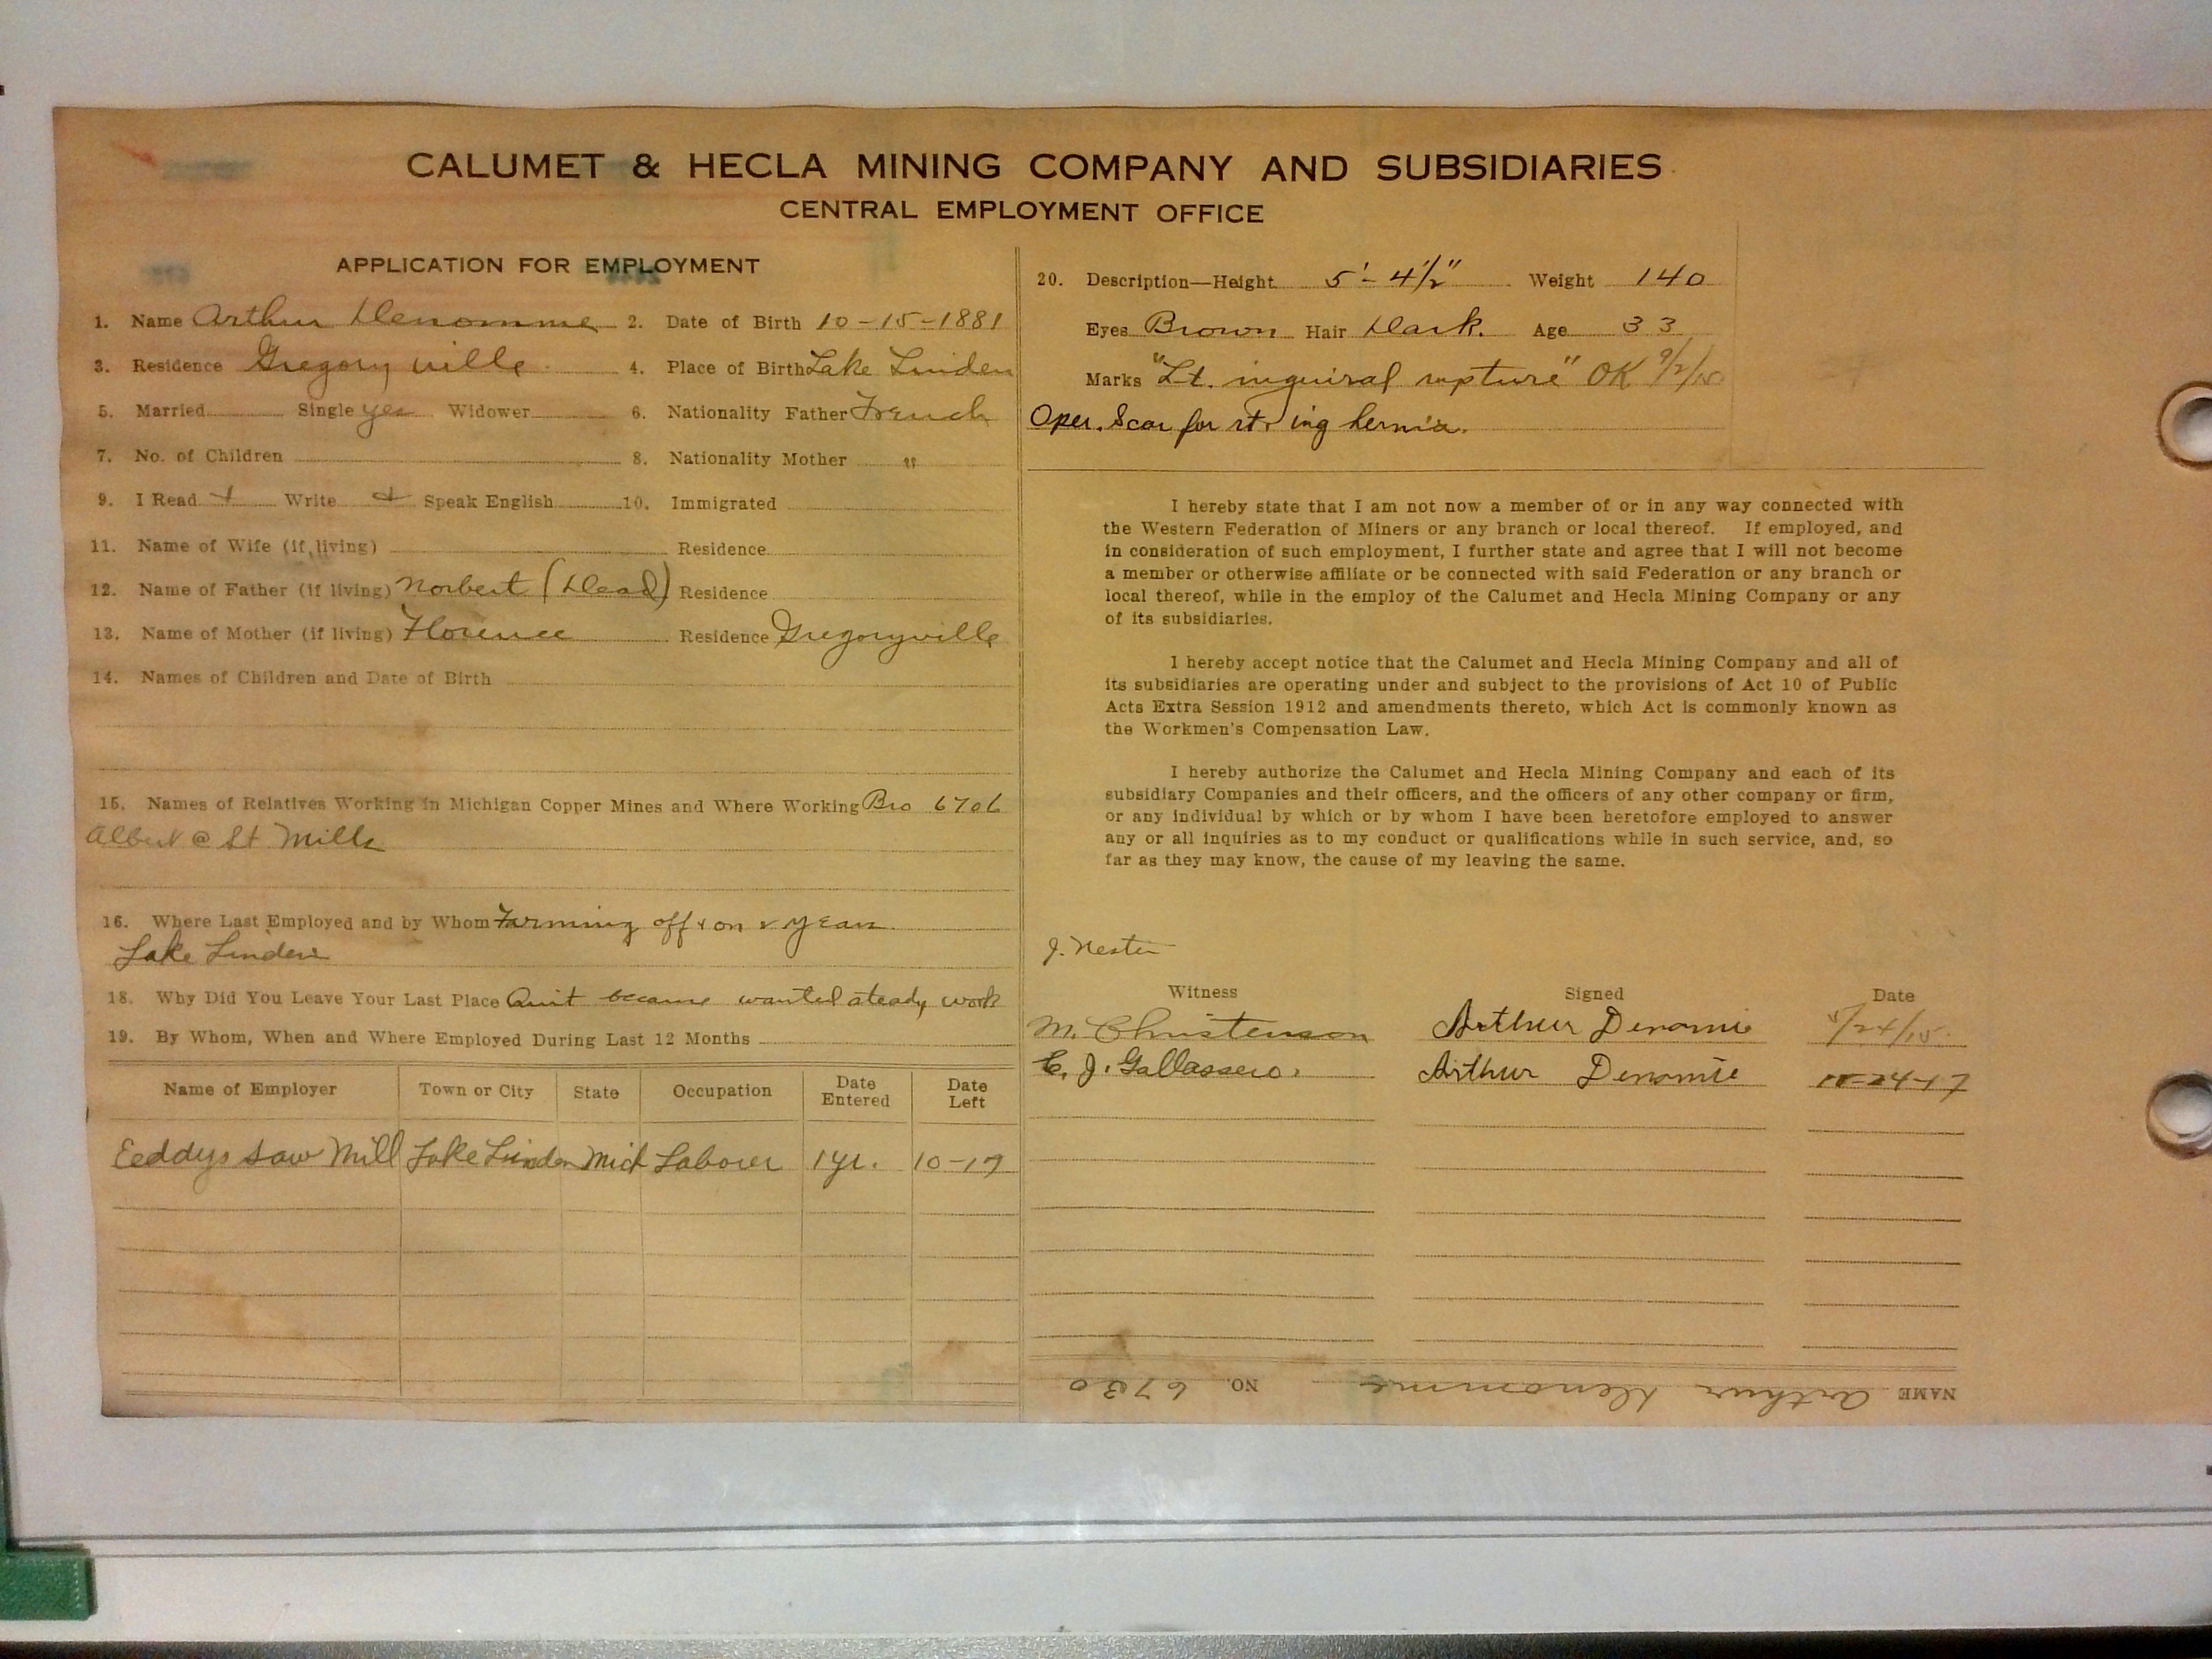 CALUMET & HECLA MINING COMPANY AND SUBSIDIARIES
CENTRAL EMPLOYMENT OFFICE
APPLICATION FOR EMPLOYMENT
1. Name Arthur Denomme 2. Date of Birth 10-15-1881
3. Residence Gregoryville 4. Place of Birth Lake Linden
5. Married Single yes Widower 6. Nationality Father French
7. No. of Children 8. Nationality Mother "
9. I Read + Write + Speak English 10. Immigrated
11. Name of Wife (if living) Residence
12. Name of Father (if living) Norbert (Dead) Residence
13. Name of Mother (if living) Florence Residence Gregoryville
14. Names of Children and Date of Birth
15. Names of Relatives Working in Michigan Copper Mines and Where Working Bro 6706
Albert @ St Mills
16. Where Last Employed and by Whom Farming off + on year
Lake Linden
18. Why Did You Leave Your Last Place Quit because wanted steady work
19. By Whom, When and Where Employed During Last 12 Months
Name of Employer Town or City State Occupation Date Entered Date Left
Eeddys Saw Mill Lake Linden Mich Laborer 1 yr. 10-17
20. Description—Height 5'-4½" Weight 140
Eyes Brown Hair Dark. Age 33
Marks "Lt. inguiral rupture" OK 9/2/15
Oper. Scar for rt. ing hernia.
I hereby state that I am not now a member of or in any way connected with
the Western Federation of Miners or any branch or local thereof. If employed, and
in consideration of such employment, I further state and agree that I will not become
a member or otherwise affiliate or be connected with said Federation or any branch or
local thereof, while in the employ of the Calumet and Hecla Mining Company or any
of its subsidiaries.
I hereby accept notice that the Calumet and Hecla Mining Company and all of
its subsidiaries are operating under and subject to the provisions of Act 10 of Public
Acts Extra Session 1912 and amendments thereto, which Act is commonly known as
the Workmen's Compensation Law.
I hereby authorize the Calumet and Hecla Mining Company and each of its
subsidiary Companies and their officers, and the officers of any other company or firm,
or any individual by which or by whom I have been heretofore employed to answer
any or all inquiries as to my conduct or qualifications while in such service, and, so
far as they may know, the cause of my leaving the same.
J. Nester
Witness Signed Date
M. Christenson Arthur Denomie /24/15
C. J. Gallassero. Arthur Denomie -24-17
NAME Arthur Denomme NO. 6730